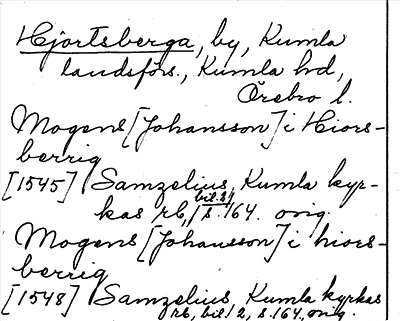 Hjortsberga, by, Kumla
landsförs., Kumla hd,
Örebro l.
Mogens [Johansson] i Hiors-
berrig
[1545] Samzelius, Kumla kyr-
kas rb, bil. 2, s. 164. orig.
Mogens [Johansson] i hiors-
berrig
[1548] Samzelius, Kumla kyrkas
rb, bil. 2, s. 164, orig.